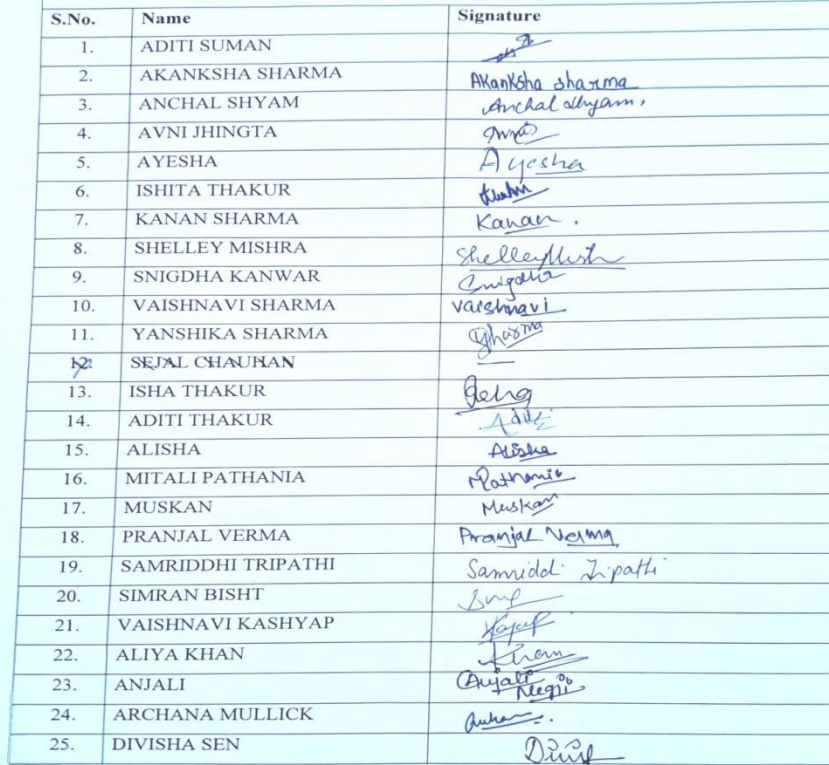 S.No. Name Signature
1. ADITI SUMAN
2. AKANKSHA SHARMA Akanksha sharma
3. ANCHAL SHYAM Anchal Shyam.
4. AVNI JHINGTA
5. AYESHA Ayesha
6. ISHITA THAKUR
7. KANAN SHARMA Kanan.
8. SHELLEY MISHRA
9. SNIGDHA KANWAR Snigdha
10. VAISHNAVI SHARMA Vaishnavi
11. YANSHIKA SHARMA YSharma
12. SEJAL CHAUHAN
13. ISHA THAKUR
14. ADITI THAKUR Aditi
15. ALISHA Alisha
16. MITALI PATHANIA
17. MUSKAN Muskan
18. PRANJAL VERMA Pranjal Verma
19. SAMRIDDHI TRIPATHI Samriddi Tripathi
20. SIMRAN BISHT
21. VAISHNAVI KASHYAP
22. ALIYA KHAN Khan
23. ANJALI Anjali Negi
24. ARCHANA MULLICK
25. DIVISHA SEN